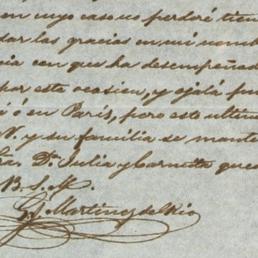 en cuyo caso no perderé tien
dar las gracias en mi nomb
cia con que ha desempeñad
por esta ocasion, y ojalá pu
i ó en Paris, pero este ultim
V. y su familia se mante
Sra. Da. Julia y Barnetta que
B. S. M.
G. Martinez del Rio